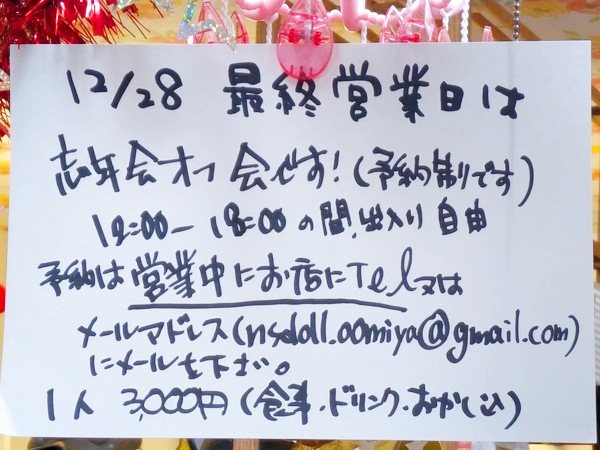 12/28 最終営業日は
忘年会オフ会です!(予約制りです)
12:00-18:00の間、出入り自由
予約は営業中にお店にTel又は
メールアドレス(nsdoll.oomiya@gmail.com)
にメールを下さい。
1人 3,000円(食事・ドリンク・おかし込)